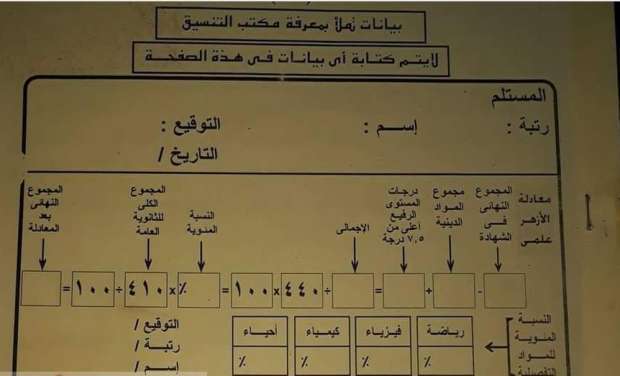 بيانات تملأ بمعرفة مكتب التنسيق
لايتم كتابة أى بيانات فى هذة الصفحة
المستلم
رتبة : إسم : التوقيع :
التاريخ /
معادلة الأزهر علمى
المجموع النهائى فى الشهادة
مجموع المواد الدينية
درجات المستوى الرفيع أعلى من ٧,٥ درجة
الإجمالى
النسبة المئوية
المجموع الكلى للثانوية العامة
المجموع النهائى بعد المعادلة
- + = ÷ ٤٤٠ × ١٠٠ = % × ٤١٠ ÷ ١٠٠ =
النسبة المئوية للمواد التفصيلية
رياضة فيزياء كيمياء أحياء
% % % %
التوقيع /
رتبة /
إسم /